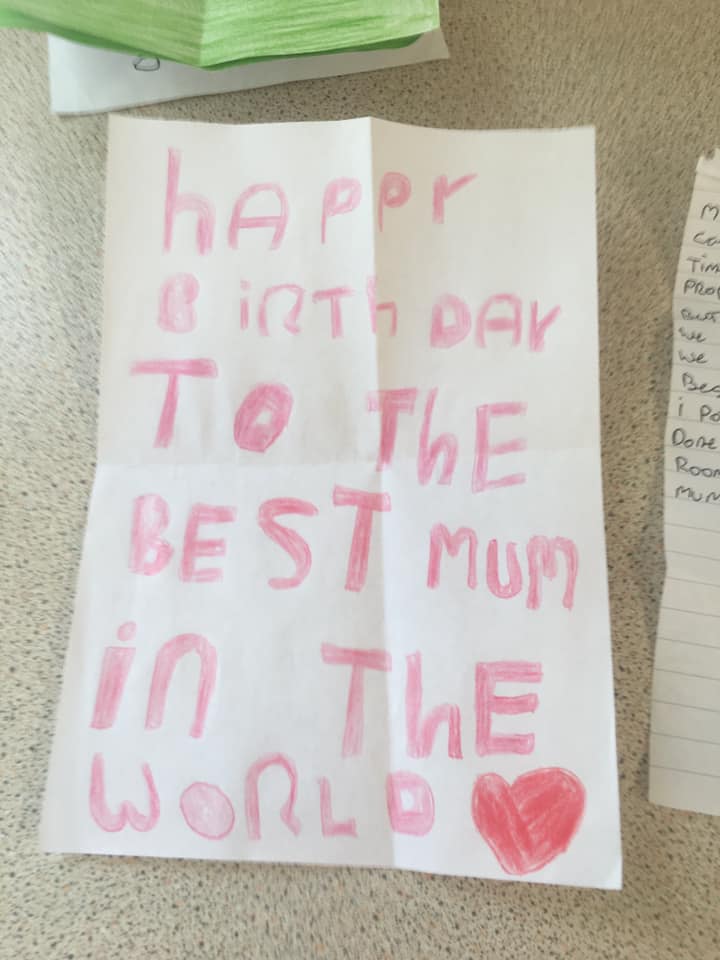 hAPPY
BiRTh DAY
TO ThE
BEST MUM
in ThE
WoRLD
Tim
But
we
we
Bes
i Po
Done
Room
MUM